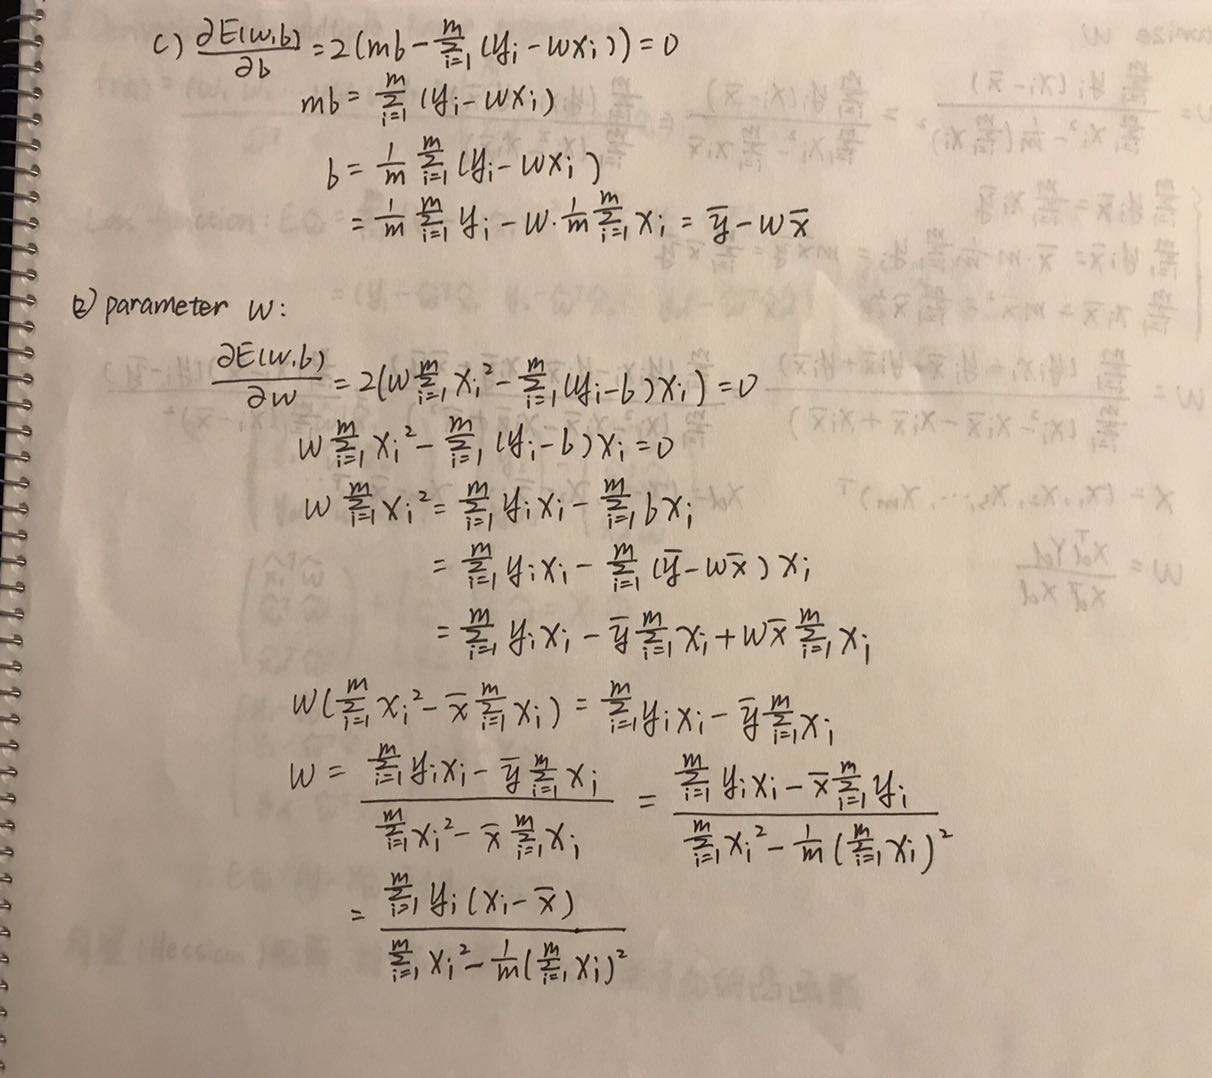 c) ∂E(w,b)/∂b = 2(mb - Σ_{i=1}^{m} (y_i - wx_i)) = 0
mb = Σ_{i=1}^{m} (y_i - wx_i)
b = 1/m Σ_{i=1}^{m} (y_i - wx_i)
= 1/m Σ_{i=1}^{m} y_i - w · 1/m Σ_{i=1}^{m} x_i = ȳ - wx̄
② parameter w:
∂E(w,b)/∂w = 2(w Σ_{i=1}^{m} x_i² - Σ_{i=1}^{m} (y_i - b)x_i) = 0
w Σ_{i=1}^{m} x_i² - Σ_{i=1}^{m} (y_i - b)x_i = 0
w Σ_{i=1}^{m} x_i² = Σ_{i=1}^{m} y_i x_i - Σ_{i=1}^{m} bx_i
= Σ_{i=1}^{m} y_i x_i - Σ_{i=1}^{m} (ȳ - wx̄)x_i
= Σ_{i=1}^{m} y_i x_i - ȳ Σ_{i=1}^{m} x_i + wx̄ Σ_{i=1}^{m} x_i
w(Σ_{i=1}^{m} x_i² - x̄ Σ_{i=1}^{m} x_i) = Σ_{i=1}^{m} y_i x_i - ȳ Σ_{i=1}^{m} x_i
w = (Σ_{i=1}^{m} y_i x_i - ȳ Σ_{i=1}^{m} x_i) / (Σ_{i=1}^{m} x_i² - x̄ Σ_{i=1}^{m} x_i) = (Σ_{i=1}^{m} y_i x_i - x̄ Σ_{i=1}^{m} y_i) / (Σ_{i=1}^{m} x_i² - 1/m (Σ_{i=1}^{m} x_i)²)
= (Σ_{i=1}^{m} y_i (x_i - x̄)) / (Σ_{i=1}^{m} x_i² - 1/m (Σ_{i=1}^{m} x_i)²)